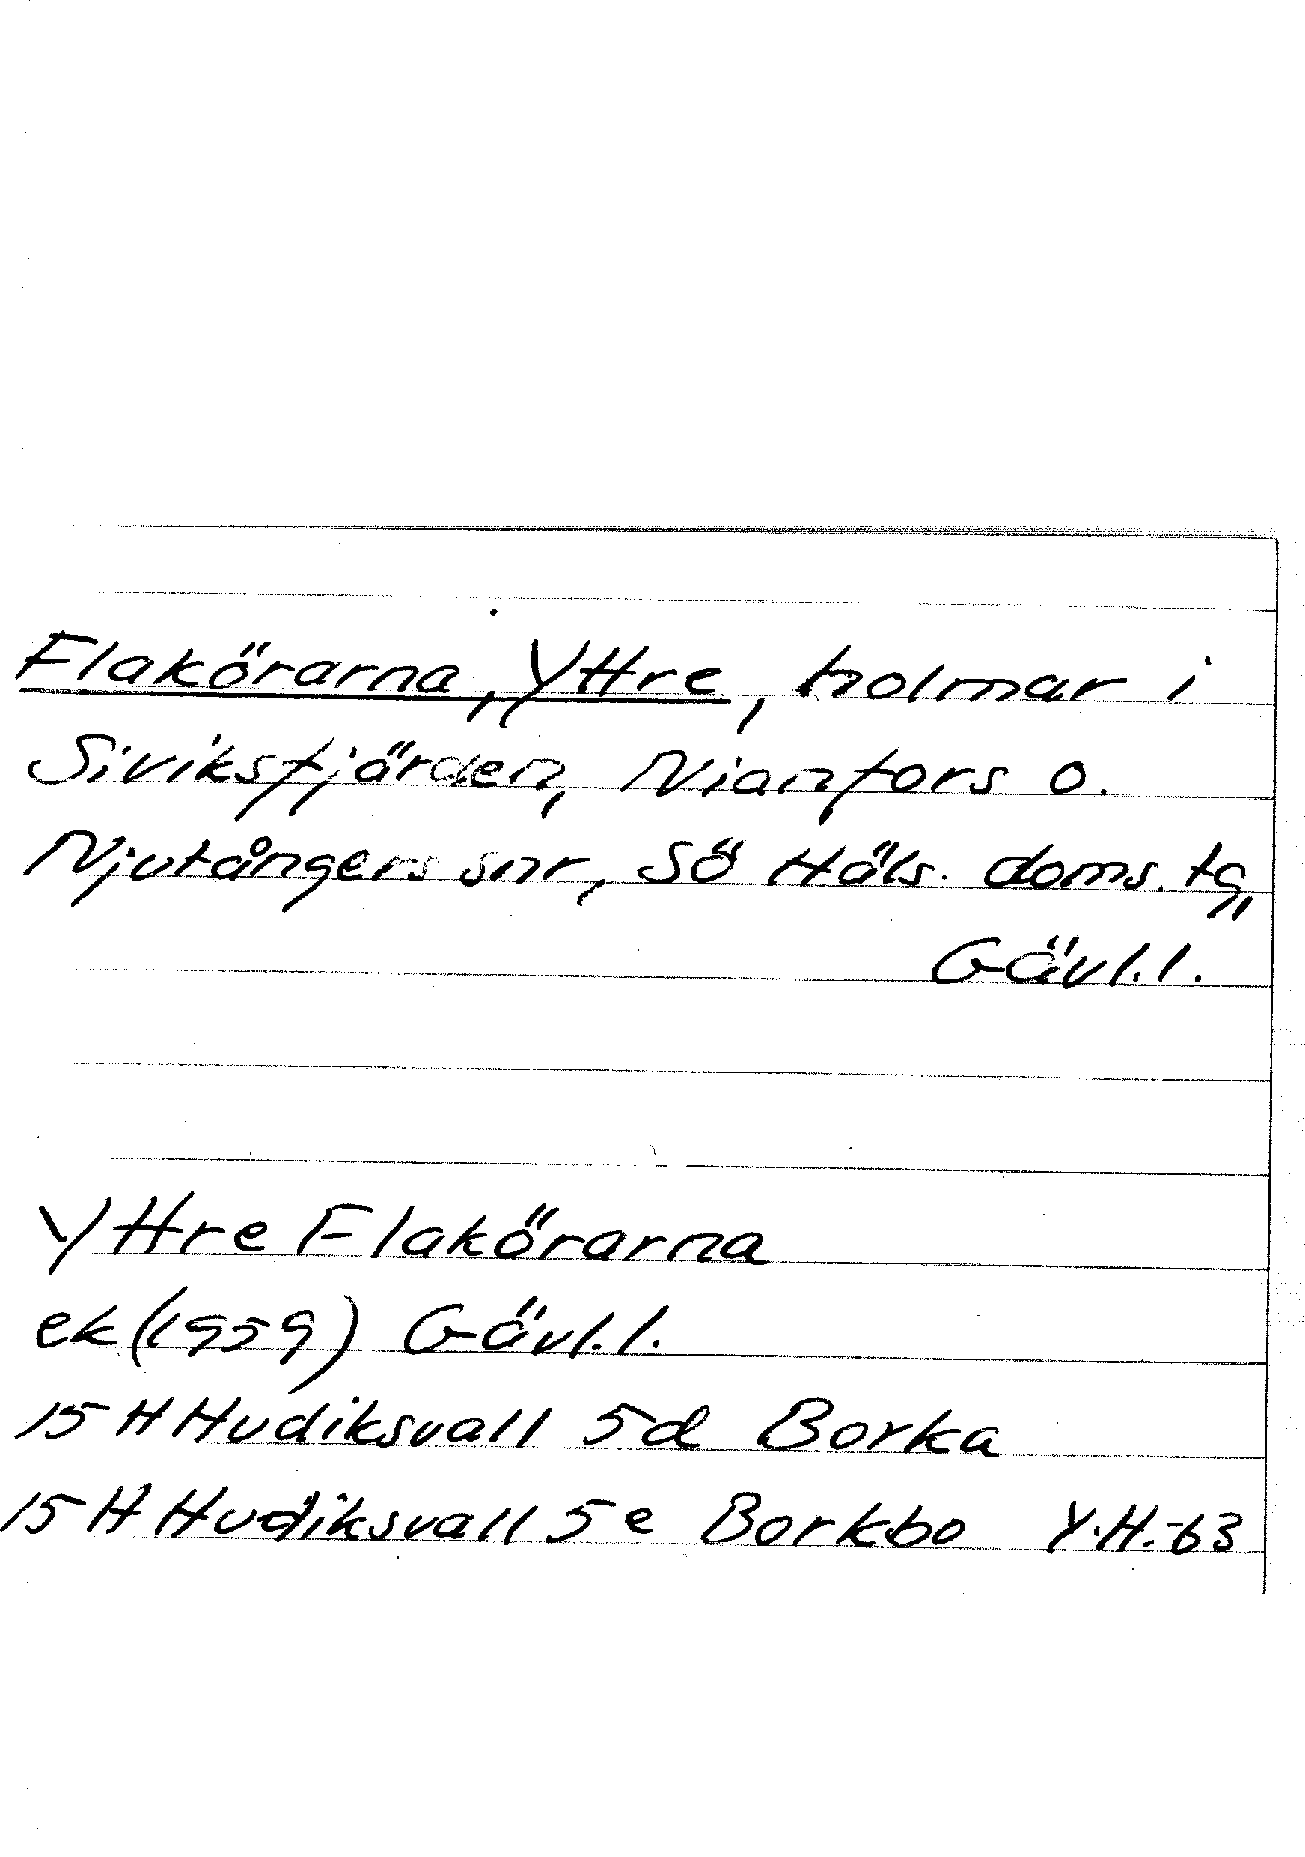 Flakörarna, Yttre, holmar i
Siviksfjärden, Nianfors o.
Njutångers snr, Sö Häls. doms. tg,
Gävl. l.
Yttre Flakörarna
ek (1959) Gävl. l.
15 H Hudiksvall 5d Borka
15 H Hudiksvall 5e Borkbo Y.H.-63